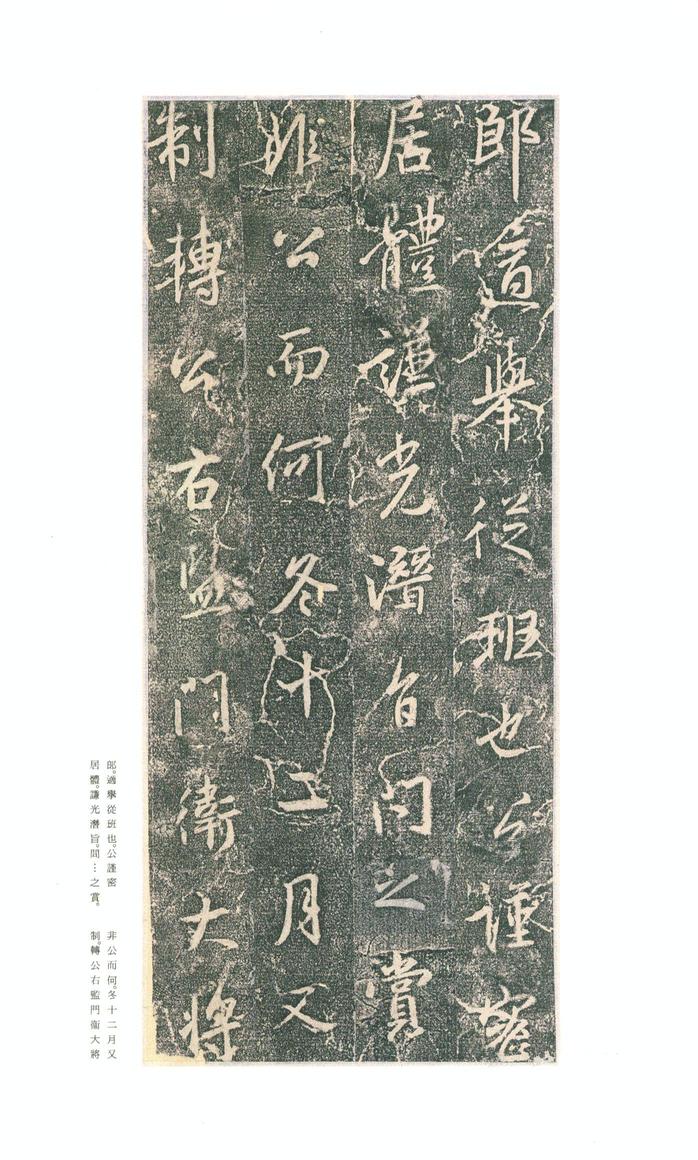 郎適舉從班也公謹密
居體謙光潛旨間之賞
非公而何冬十二月又
制轉公右監門衛大將
郎。適擧從班也。公謹密
居體。謙光潛旨。間…之賞。
非公而何。冬十二月又
制。轉公右監門衞大將